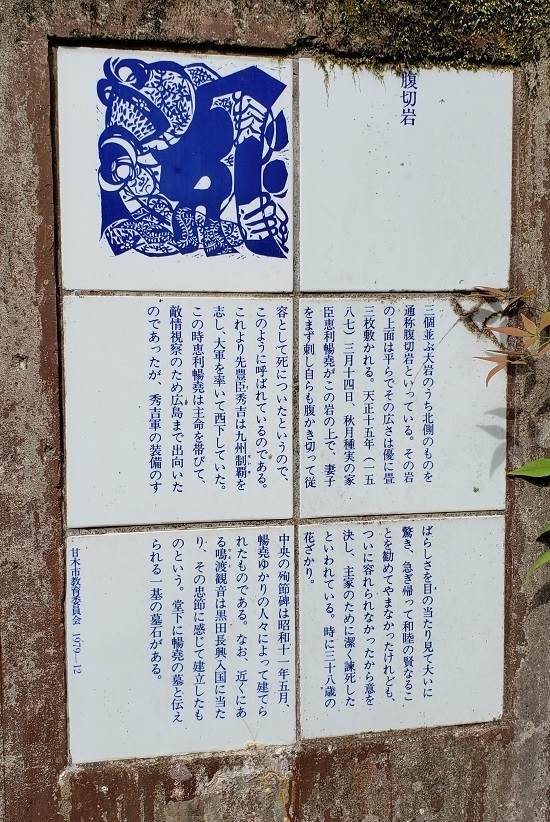 腹切岩
三個並ぶ大岩のうち北側のものを
通称腹切岩といっている。その岩
の上面は平らでその広さは優に畳
三枚敷かれる。天正十五年(一五
八七)三月十四日、秋月種実の家
臣恵利暢堯がこの岩の上で、妻子
をまず刺し自らも腹かき切って従
容として死についたというので、
このように呼ばれているのである。
これより先豊臣秀吉は九州制覇を
志し、大軍を率いて西下していた。
この時恵利暢堯は主命を帯びて、
敵情視察のため広島まで出向いた
のであったが、秀吉軍の装備のす
ばらしさを目の当たり見て大いに
驚き、急ぎ帰って和睦の賢なるこ
とを勧めてやまなかったけれども、
ついに容れられなかったから意を
決し、主家のために潔く諫死した
といわれている。時に三十八歳の
花ざかり。
中央の殉節碑は昭和十一年五月、
暢堯ゆかりの人々によって建てら
れたものである。なお、近くにあ
る鳴渡観音は黒田長興入国に当た
り、その忠節に感じて建立したも
のという。堂下に暢堯の墓と伝え
られる一基の墓石がある。
甘木市教育委員会 1979—12